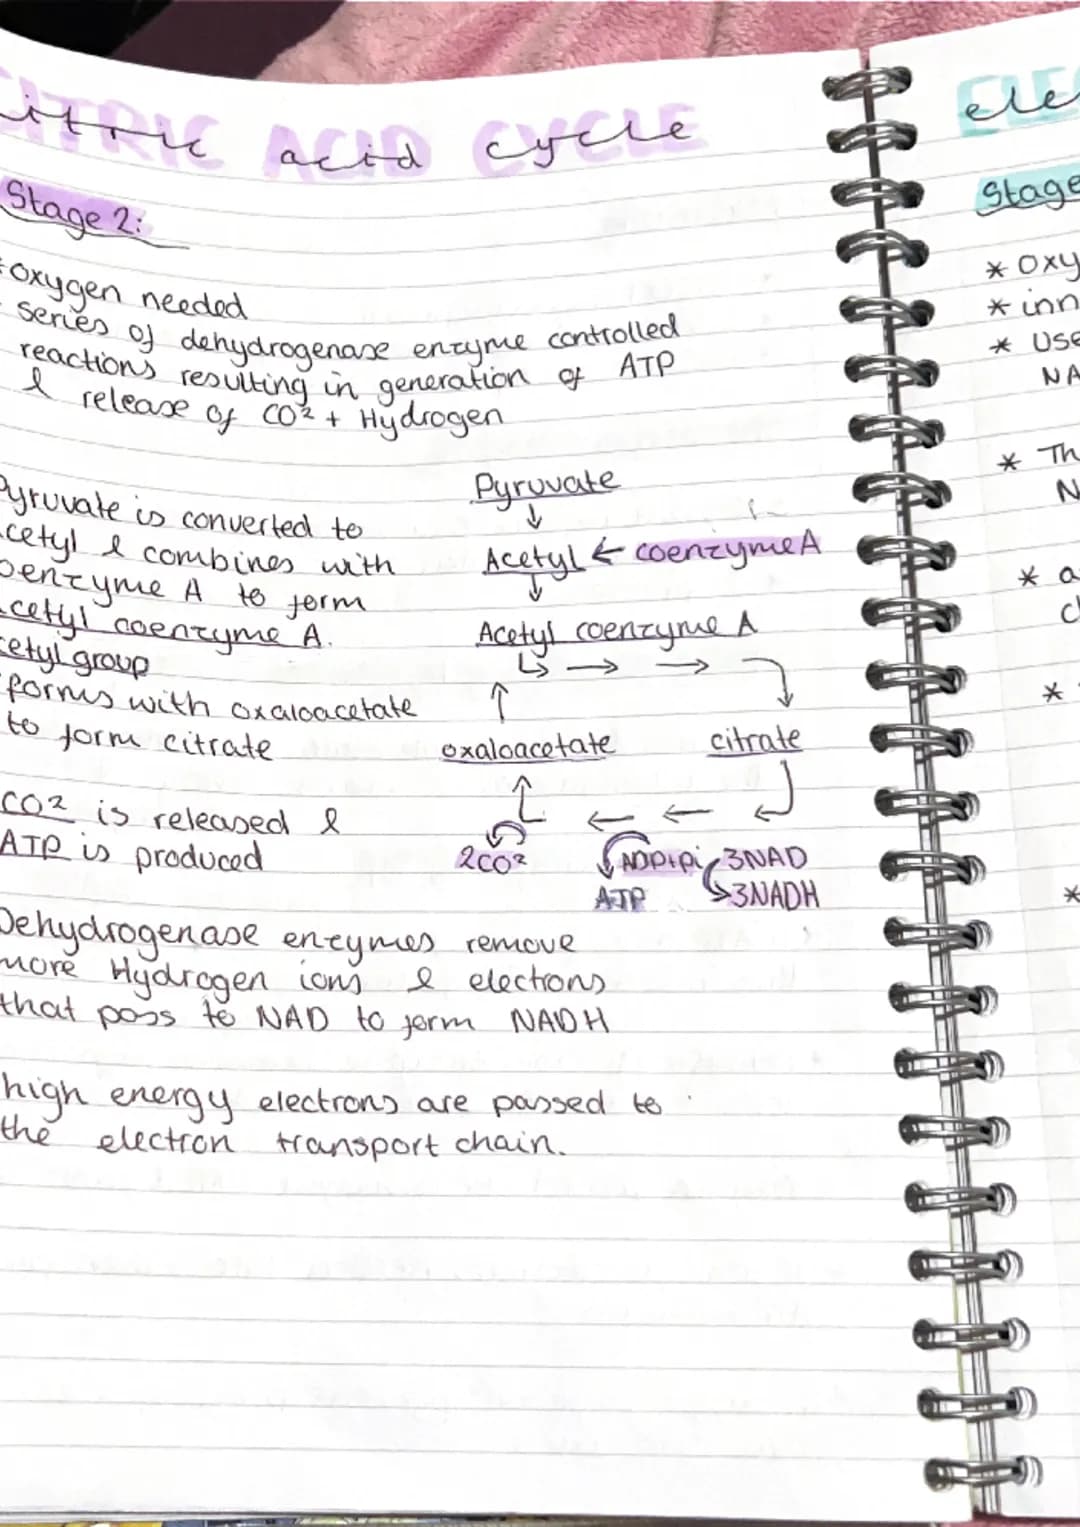 CITRIC ACID CYCLE
citric acid cycle
Stage 2:
* oxygen needed
series of dehydrogenase enzyme controlled
reactions resulting in generation of ATP
& release of CO² + Hydrogen
Pyruvate is converted to
acetyl & combines with
coenzyme A to form
acetyl coenzyme A.
acetyl group
forms with oxaloacetate
to form citrate
CO² is released &
ATP is produced
Pyruvate
↓
Acetyl ← coenzyme A
↓
Acetyl coenzyme A
↳ → →
↑
oxaloacetate citrate
↑ ← ←
2CO² ADP+pi 3NAD
ATP 3NADH
Dehydrogenase enzymes remove
more Hydrogen ions & electrons
that pass to NAD to form NADH
high energy electrons are passed to
the electron transport chain.
ELEC
elec
Stage
* Oxy
* inn
* Use
NA
* Th
N
* a
c
*
*